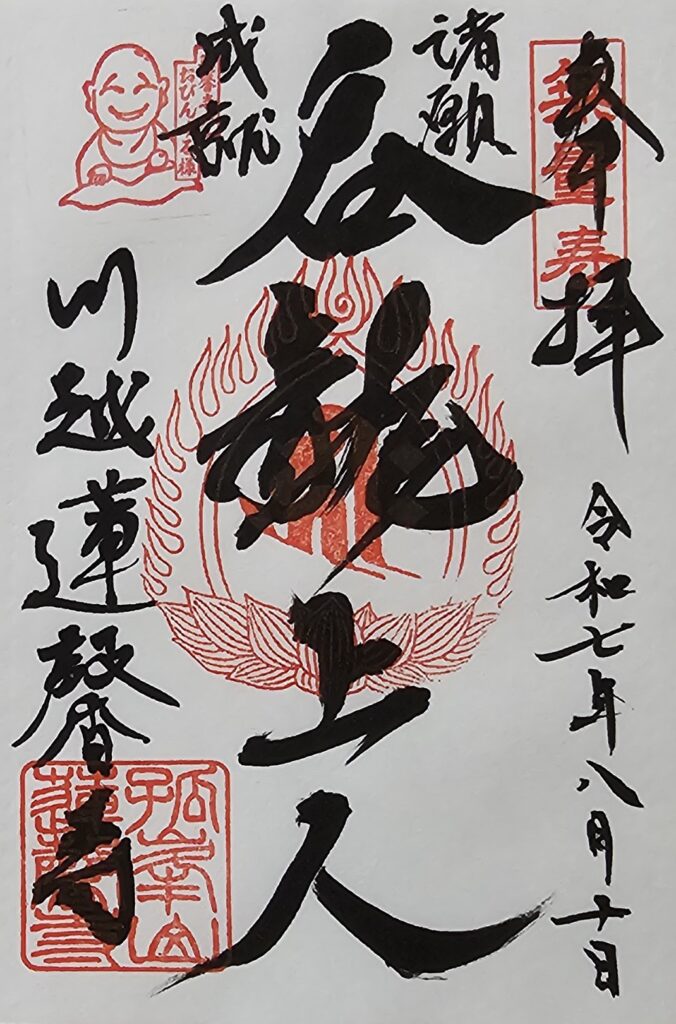 奉拝
無量寿
令和七年八月十日
諸願
成就
呑龍上人
川越蓮馨寺
孤峯山
蓮馨寺